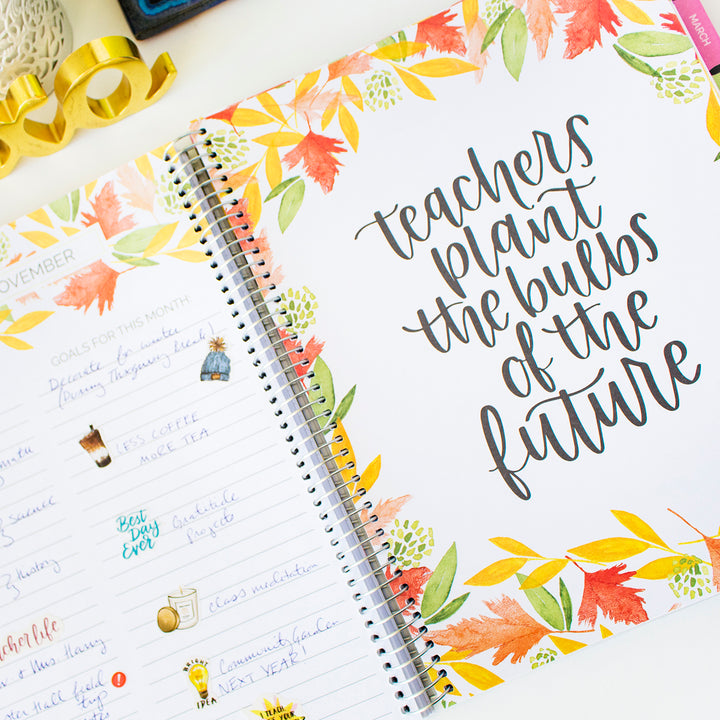 OVEMBER
GOALS FOR THIS MONTH:
Decorate for winter
(During Thxgiving break!)
LESS COFFEE
MORE TEA
BEST
DAY
EVER
Gratitude
Projects
& Science
& History
class meditation
cherlife
& Mrs Harry
Hall field
trip
Community Garden
NEXT YEAR!
BRIGHT
IDEA
I TEACH
MARCH
teachers
plant
the bulbs
of the
future